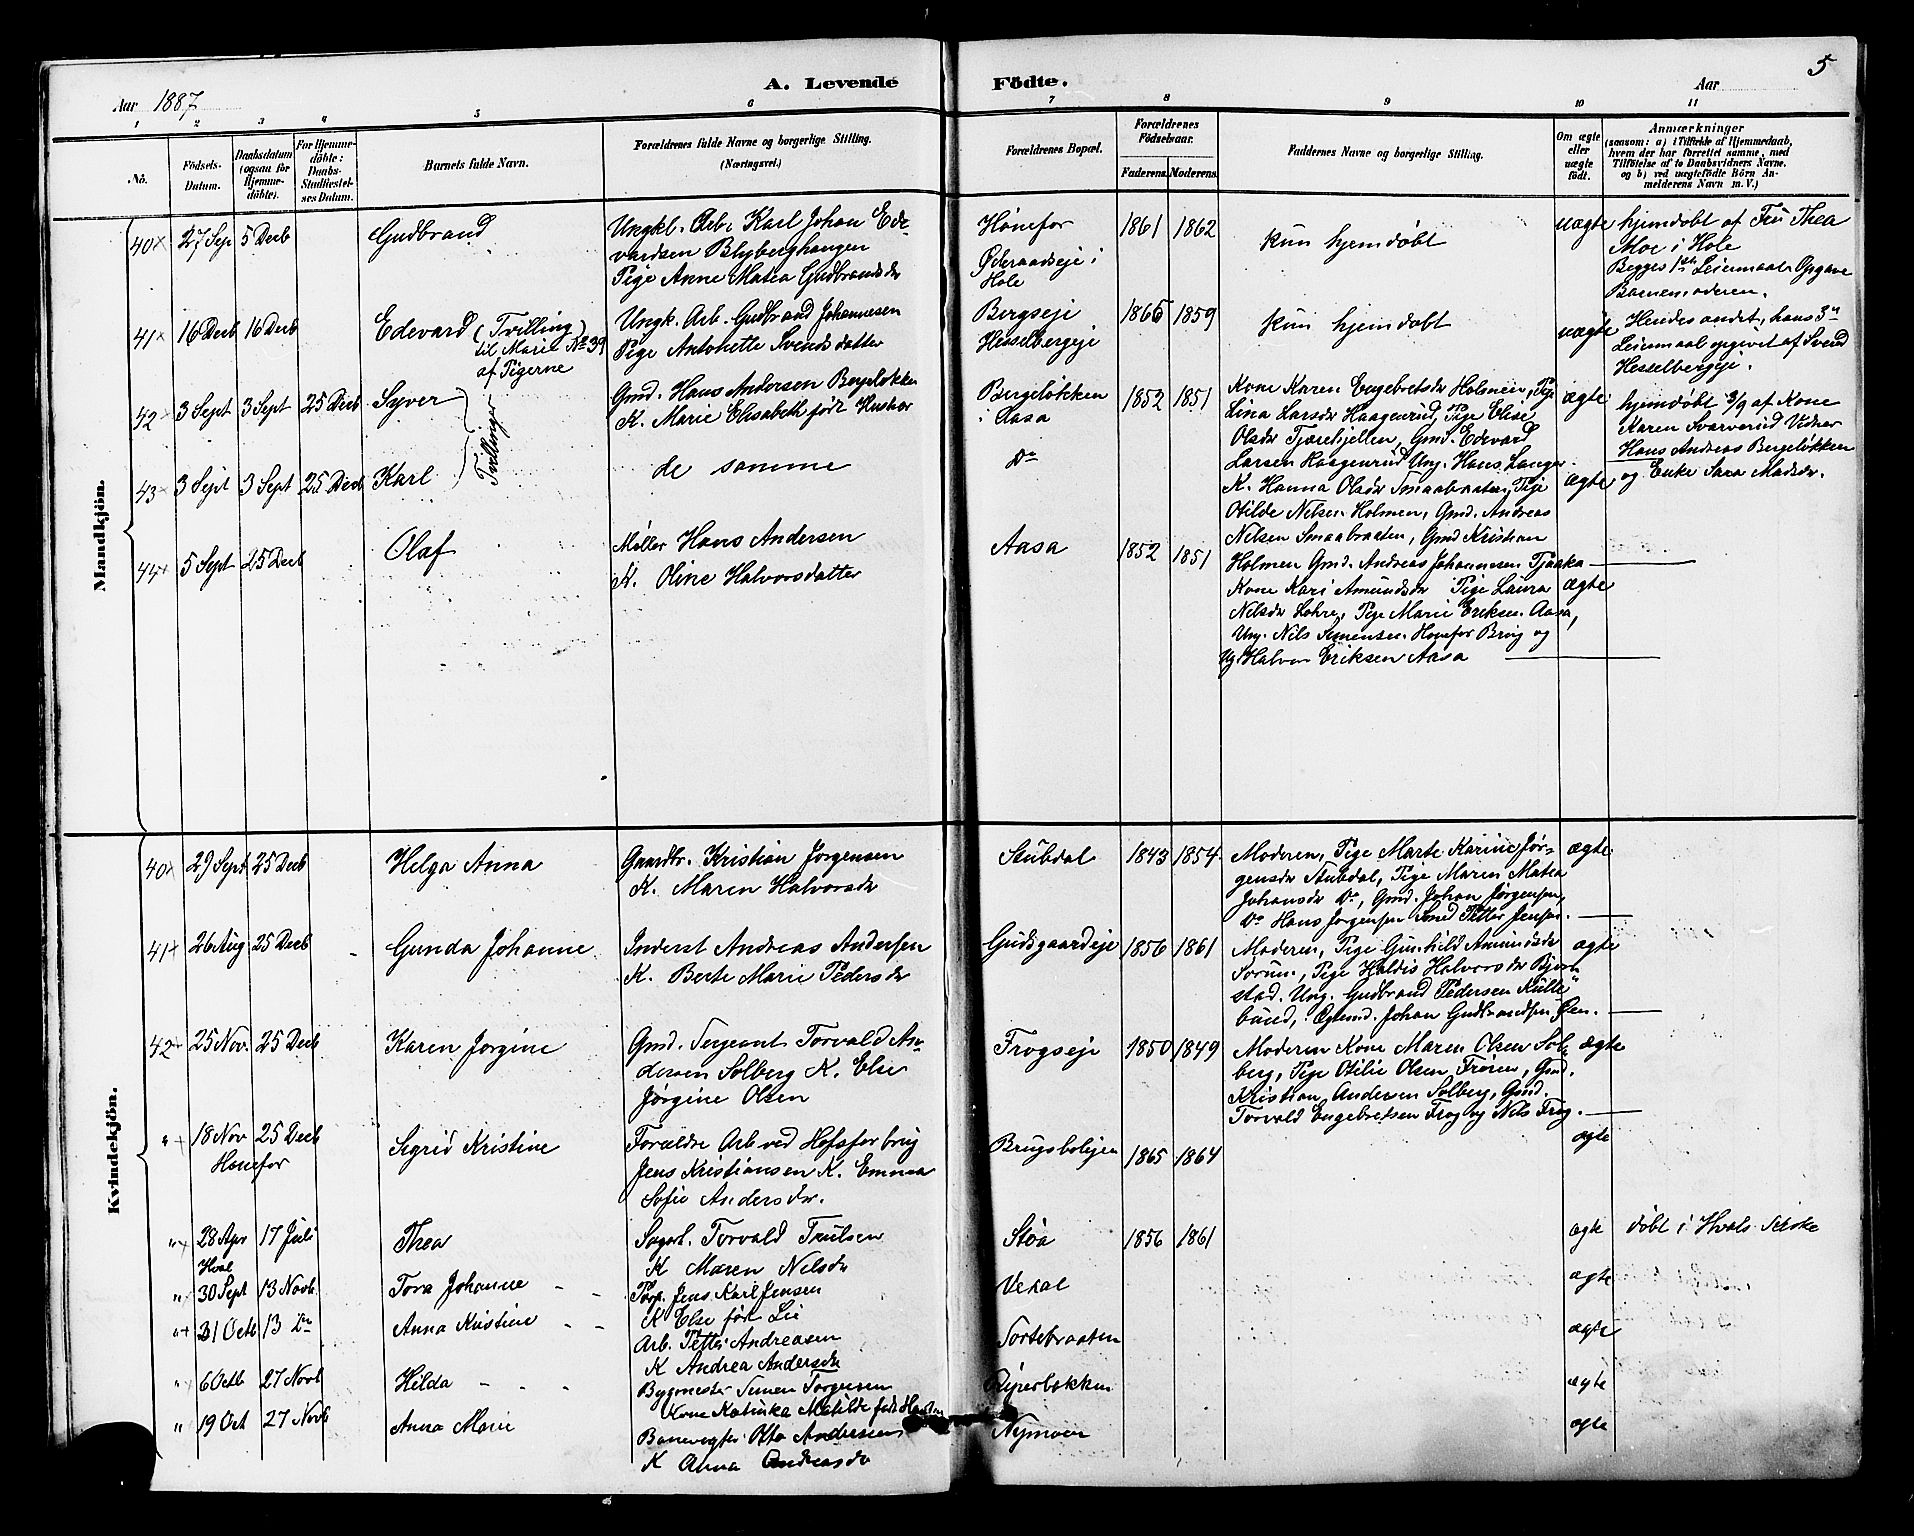 5
A. Levende Födte.
Aar 1887
Aar
1 2 3 4 5 6 7 8 9 10 11
No.
Födsels-Datum.
Daabsdatum (ogsaa for Hjemme-döbte).
For Hjemme-döbte: Daabs-Stadfæstel-ses Datum.
Barnets fulde Navn.
Forældrenes fulde Navne og borgerlige Stilling. (Næringsvei.)
Forældrenes Bopæl.
Forældrenes Födselsaar.
Faderens. Moderens.
Faddernes Navne og borgerlige Stilling.
Om ægte eller uægte födt.
Anmærkninger
(saasom: a) i Tilfælde af Hjemmedaab, hvem der har forrettet samme, med Tilföielse af to Daabsvidners Navne. og b) ved uægtefödte Börn An-melderens Navn m. V.)
Mandkjön.
40 27 Sep 5 Decb Gudbrand
Ungkl. Arb. Karl Johan Ede-
vardsen Blyberghaugen
Pige Anne Matea Gudbrandsdr
Hønefos
Øderaadseje i
Hole
1861 1862 kun hjemdøbt uægte
hjemdøbt af Fru Thea
Moe i Hole
Begges 1ste Leiermaal. Opgave
Barnemoderen.
41 16 Decb 16 Decb Edevard (Tvilling
til Marie No 39
af Pigerne
Ungk. Arb. Gudbrand Johannesen
Pige Antonette Svendsdatter
Bergseje
Hesselbergeje
1865 1859 kun hjemdøbt uægte
Hendes andet, hans 3die
Leiermaal opgivet af Svend
Hesselbergeje.
42 3 Sept 3 Sept 25 Decb Syver
Tvillinger
Gmd. Hans Andersen Bergeløkken
K. Marie Elisabeth født
Bergeløkken
i Aasa
1852 1851 ægte
Kone Karen Engebretsdr Holmen, Pige
Lina Larsdr Haagenrud, Pige Elise
Olsdr Tjærehjellen, Gmd. Edevard
Larsen Haagenrud Ung. Hans Langer.
hjemdøbt 3/9 af Kone
Karen Svarverud Vidner
Hans Andreas Bergeløkken
og Enke Sara Madsdr.
43 3 Sept 3 Sept 25 Decb Karl
de samme Do
K. Hanna Olsdr Smaabraaten, Pige
Otilde Nelsen Holmen, Gmd. Andreas
Nilsen Smaabraaten, Gmd Kristian
Holmen Gmd. Andreas Johannesen Tjaaka
ægte
44 5 Sept 25 Decb Olaf
Møller Hans Andersen
K. Oline Halvorsdatter
Aasa 1852 1851
Kone Kari Amundsdr Pige Laura
Nelsdr Lohre, Pige Marie Eriksen Aasa,
Ung. Nils Simensen Hønefos Brug og
Ug. Halvor Eriksen Aasa
ægte
Kvindekjön.
40 29 Sept 25 Decb Helga Anna
Gaardbr. Kristian Jørgensen
K. Maren Halvorsdr
Stubdal 1843 1854
Moderen, Pige Marte Karine Jør-
gensdr Stubdal, Pige Maren Matea
Johansdr Do, Gmd. Johan Jørgensen,
Do Hans Jørgensen Smed Petter Jensen.
ægte
41 26 Aug 25 Decb Gunda Johanne
Inderst Andreas Andersen
K. Berte Marie Pedersdr
Gudsgaardeje 1856 1861
Moderen, Pige Gunhild Amundsdr
Sørum, Pige Haldis Halvorsdr Bjørn-
stad. Ung. Gudbrand Pedersen Kulte-
bund, Egtemd. Johan Gudbrandsen Gen.
ægte
42 25 Nov. 25 Decb Karen Jørgine
Gmd. Sergeant Torvald An-
dersen Solberg K. Else
Jørgine Olsen
Frogseje 1850 1849
Moderen Kone Maren Olsen Sol-
berg, Pige Otilie Olsen Frøsen, Gmd.
Kristian Andersen Solberg, Gmd.
Torvald Engebretsen Frog og Nils Frog.
ægte
" 18 Nov 25 Decb Sigrid Kristine
Hønefos
Forældre Arb. ved Hofsfos brug
Jens Kristiansen K. Emma
Sofie Andersdr.
Brugsboligen 1865 1864 ægte
" 28 Apr 17 Juli Thea
Hval
Sagarb. Torvald Trulsen
K Maren Nelsdr
Støa 1856 1861 ægte døbt i Hvals Kirke
" 30 Sept 13 Novb Tora Johanne
Jens Karl Jensen
K Else født Lie
Veksal ægte
" 31 Octb 13 Do Anna Kristine
Arb. Petter Andreasen
K Andrea Andersdr
Sortebraaten ægte
" 6 Octb 27 Novb Hilda
Bygmester Simen Torgersen
Kone Katinka Matilde født Hansen
Piperbakken ægte
" 19 Oct 27 Novb Anna Marie
Banevogter Otto Andersen
K Anna Andreasdr
Nymoen ægte